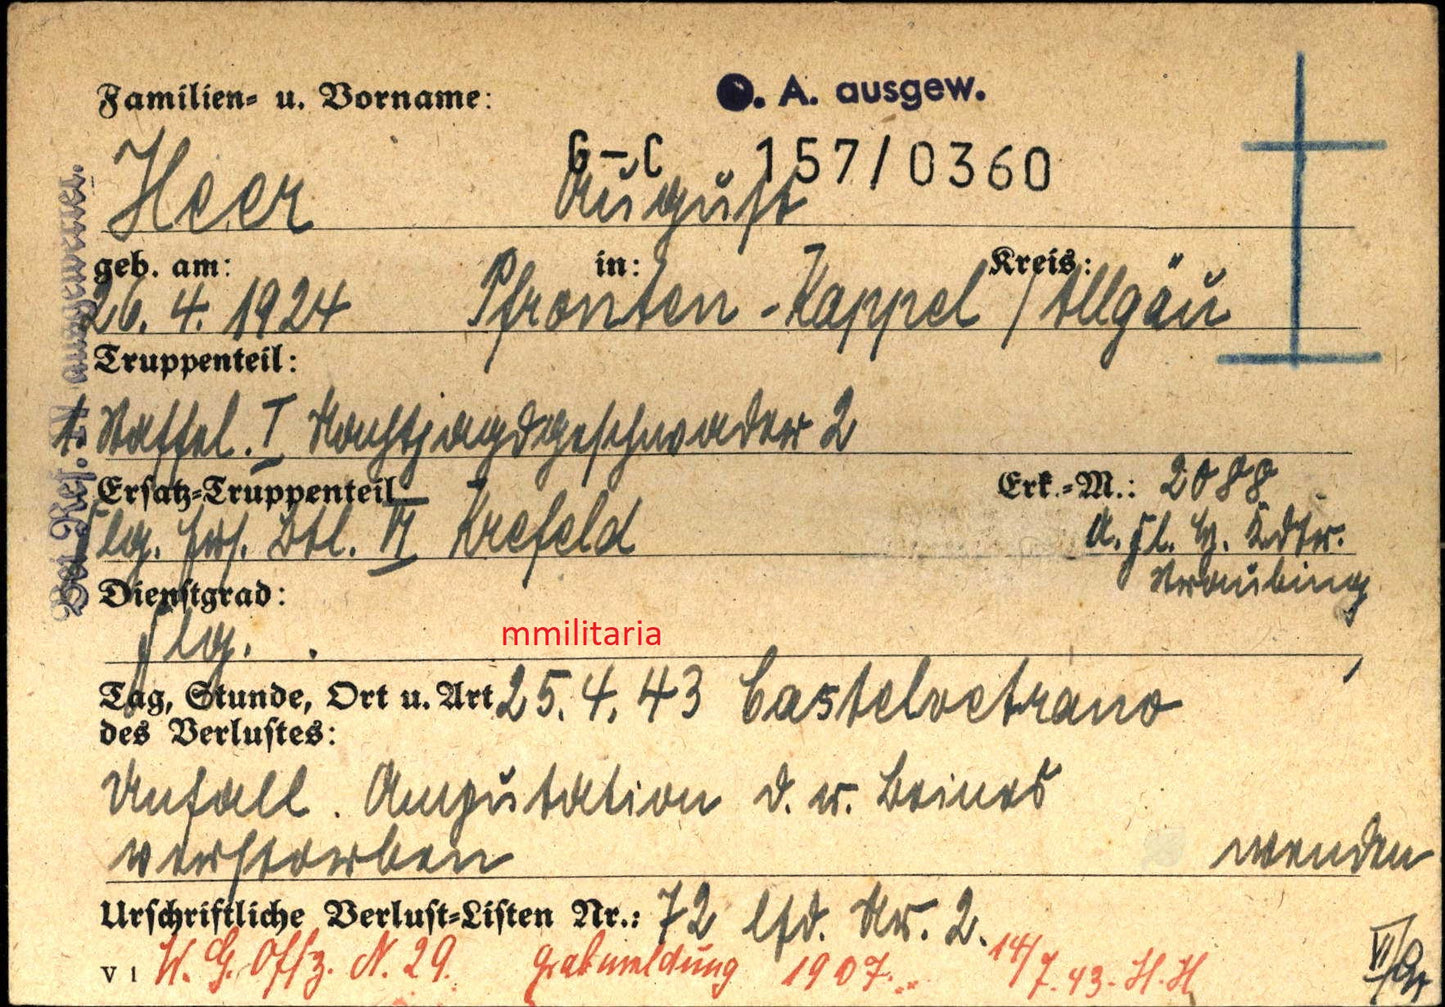 Familien- u. Vorname:
O. A. ausgew.
G-C 157/0360
Heer August
geb. am: in: Kreis:
26. 4. 1924 Pfronten-Kappel / Allgäu
Truppenteil:
1. Staffel. I Nachtjagdgeschwader 2
Ersatz-Truppenteil Erk.-M.: 2088
Flg. Ers. Btl. VI Krefeld
Straubing
Dienstgrad:
Flg.
mmilitaria
Tag, Stunde, Ort u. Art 25. 4. 43 Castelvetrano
des Verlustes:
Unfall. Amputation d. r. Beines
verstorben wenden
Urschriftliche Verlust-Listen Nr.: 72 lfd. Nr. 2.
V 1 W. G. Offz. N. 29. Grabmeldung 1907. 14/7. 43. H. H
Bei Ref. IV ausgewertet.